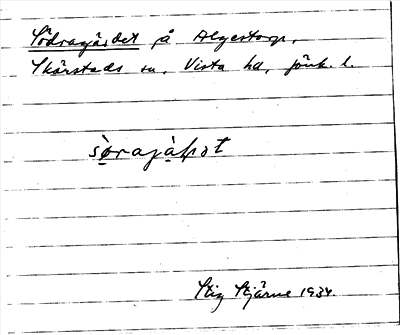 Södragärdet på Algestorp,
Skärstads sn, Vista hd, Jönk. l.
Stig Stjärne 1934.